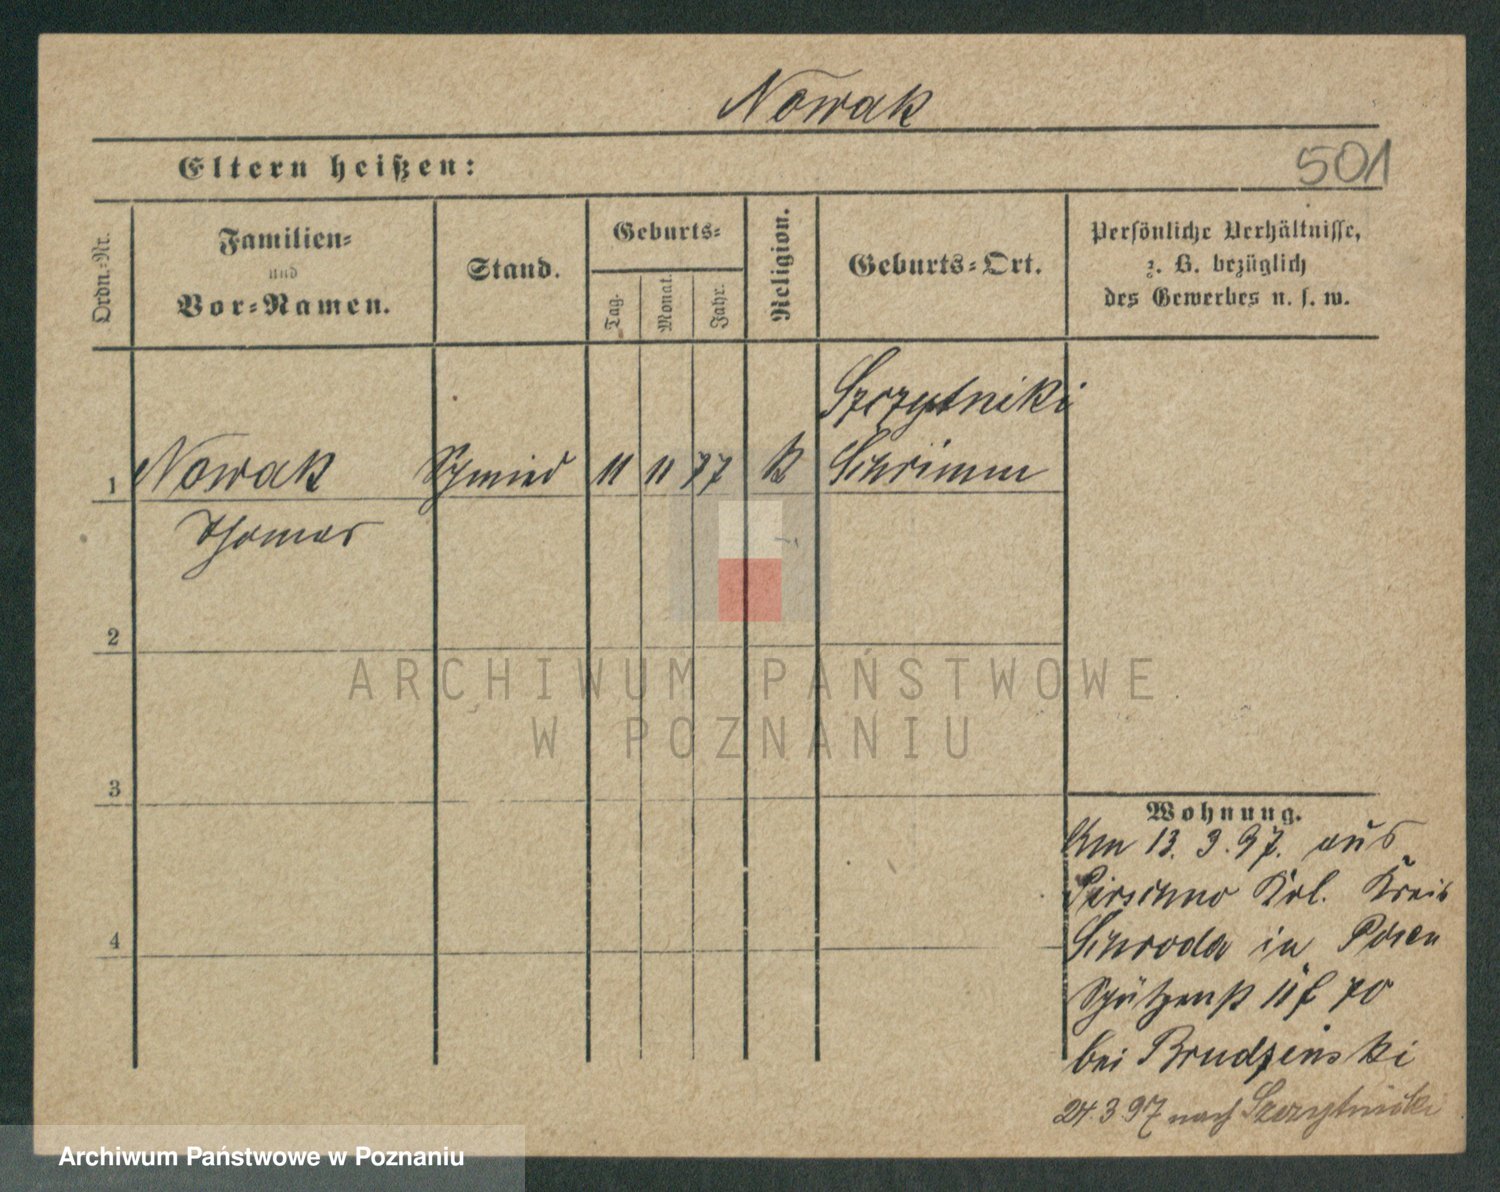 Nowak
Eltern heißen:
501
Ordn.-Nr.
Familien-
und
Vor-Namen.
Stand.
Geburts-
Tag.
Monat.
Jahr.
Religion.
Geburts-Ort.
Persönliche Verhältnisse,
z. B. bezüglich
des Gewerbes u. s. w.
Szczytniki
1 Nowak Schmied 11 11 77 k Schrimm
Thomas
2
ARCHIWUM PAŃSTWOWE
W POZNANIU
3
Wohnung.
Am 13. 3. 97. aus
Kreis
4
Schroda in Posen
Schützenst 11 f 70
bei Brudzinski
24.3 97 nach Szczytniki
Archiwum Państwowe w Poznaniu